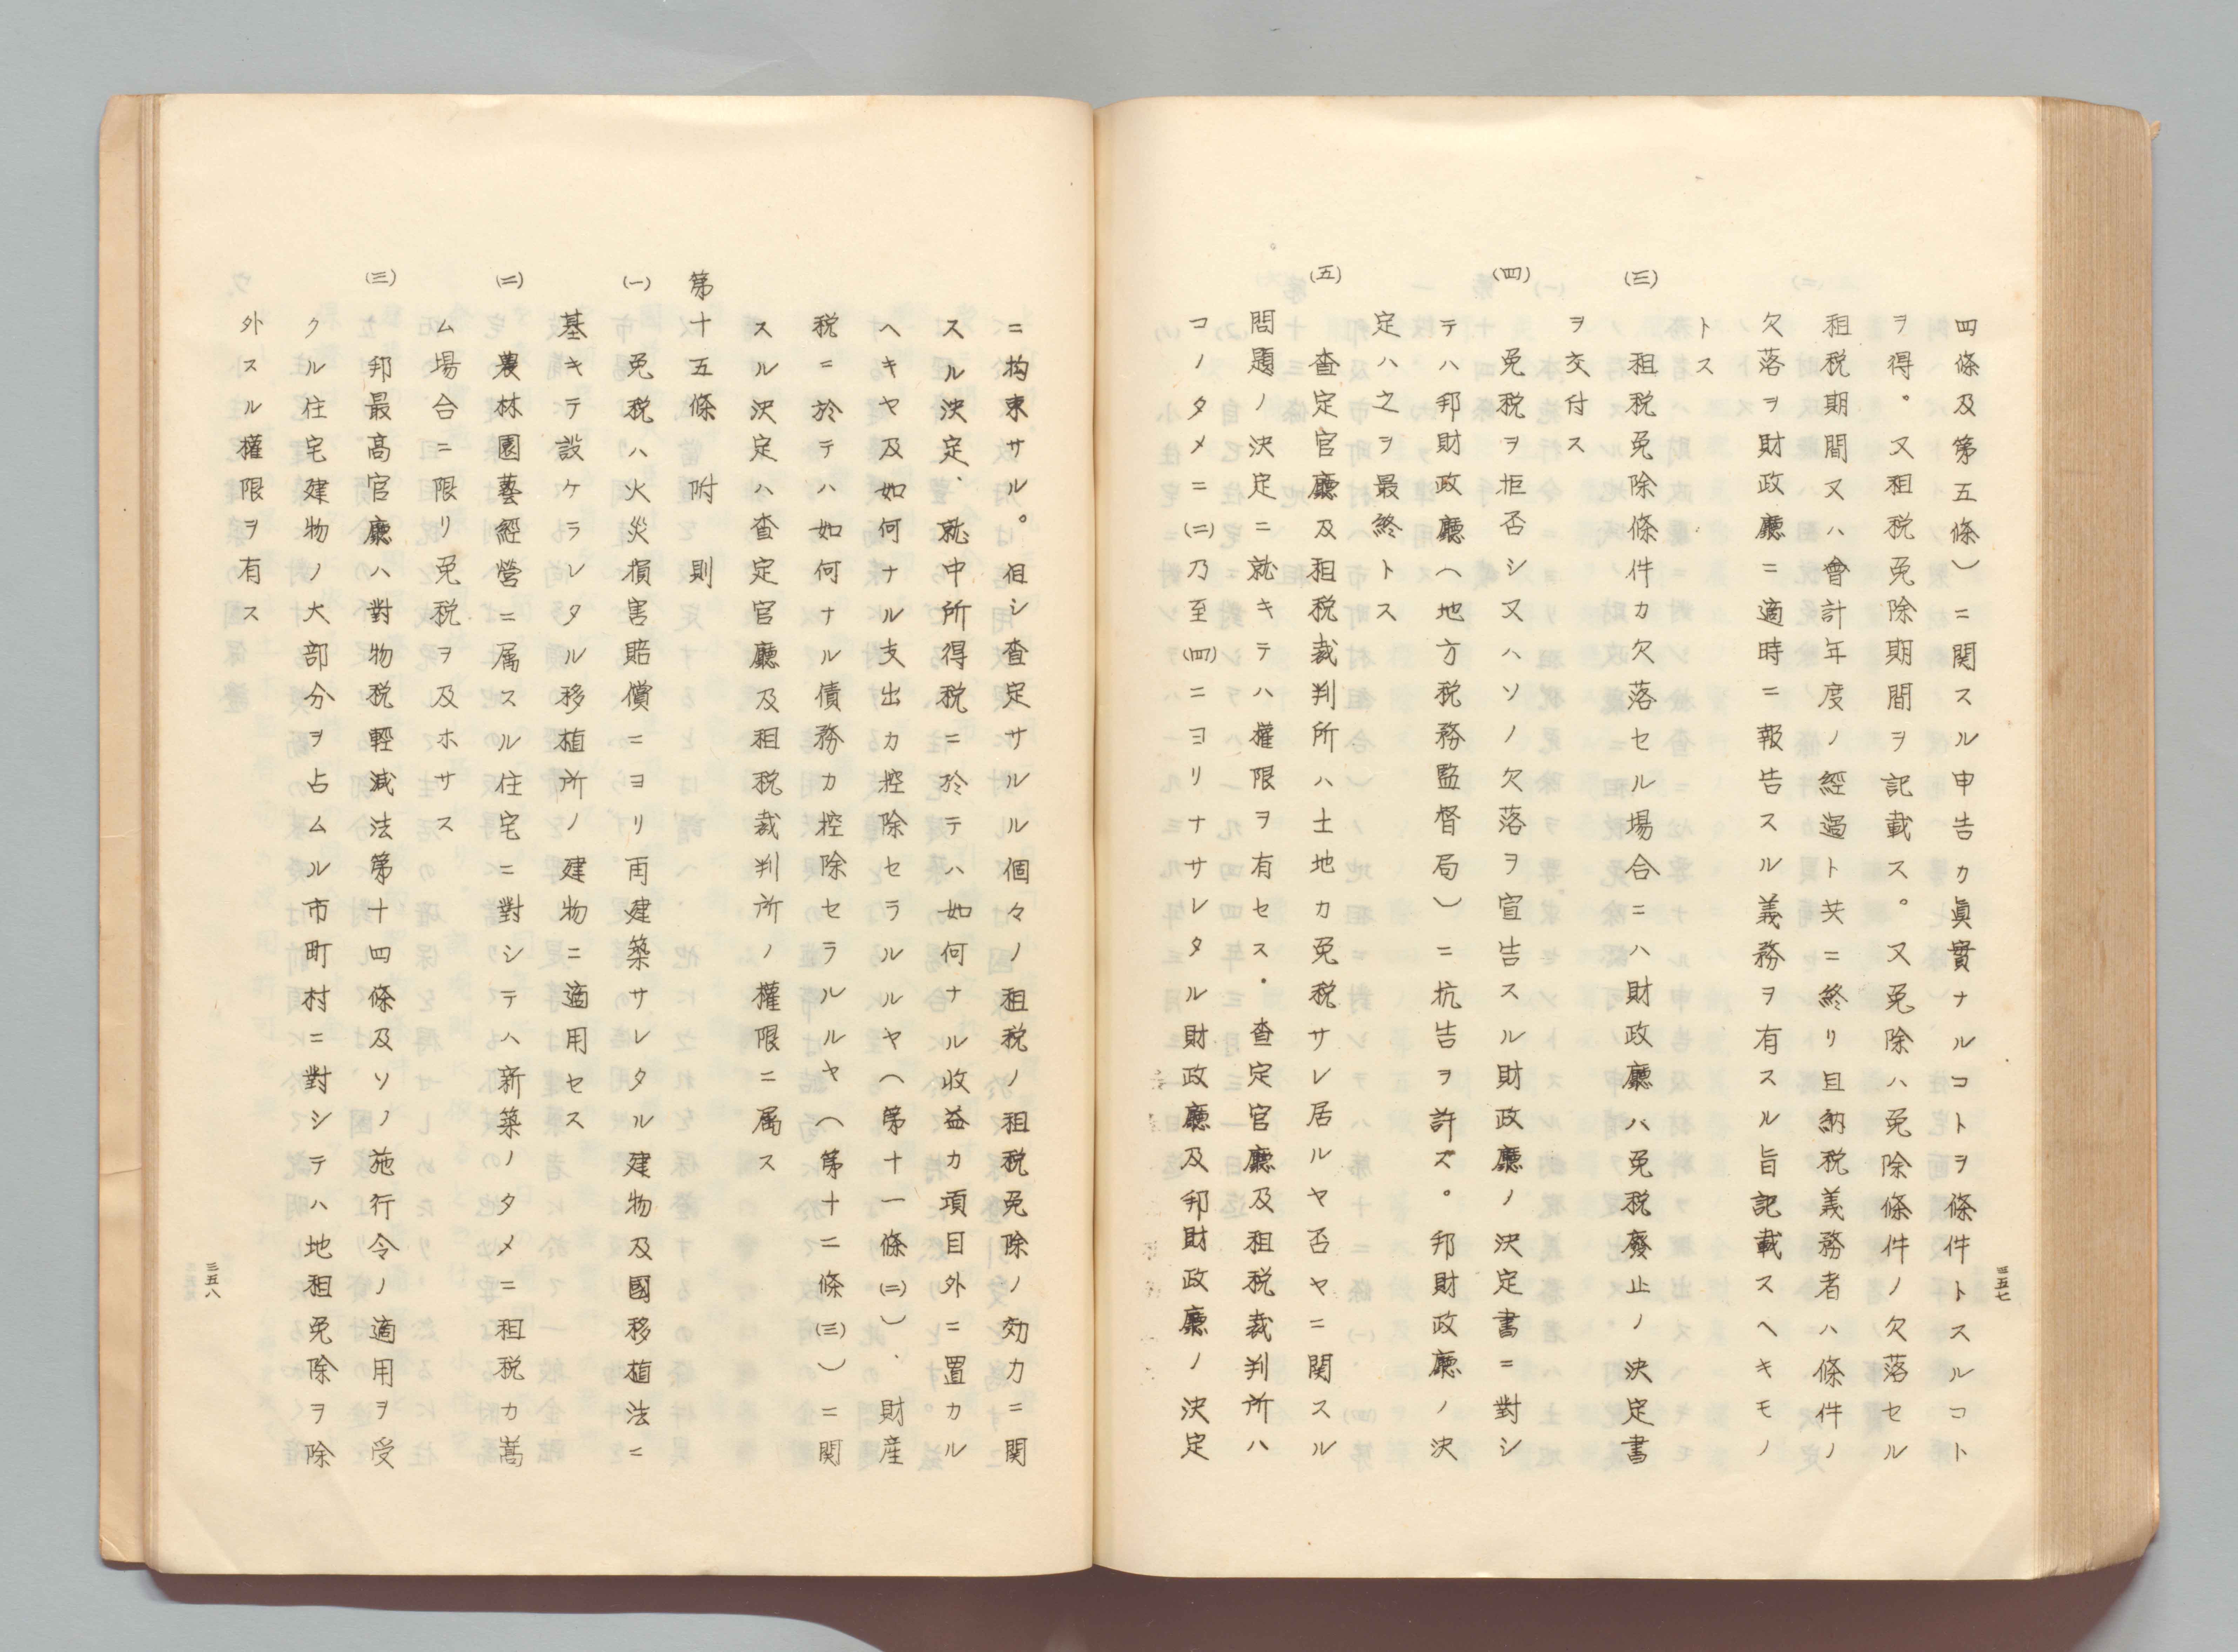 四條及第五條）ニ関スル申告カ眞實ナルコトヲ條件トスルコト
ヲ得。又租税免除期間ヲ記載ス。又免除ハ免除條件ノ欠落セル
租税期間又ハ會計年度ノ經過ト共ニ終リ且納税義務者ハ條件ノ
欠落ヲ財政廳ニ適時ニ報告スル義務ヲ有スル旨記載スヘキモノ
トス
(三)　租税免除條件カ欠落セル場合ニハ財政廳ハ免税廢止ノ決定書
ヲ交付ス
(四)　免税ヲ拒否シ又ハソノ欠落ヲ宣告スル財政廳ノ決定書ニ對シ
テハ邦財政廳（地方税務監督局）ニ抗告ヲ許ズ。邦財政廳ノ決
定ハ之ヲ最終トス
(五)　査定官廳及租税裁判所ハ土地カ免税サレ居ルヤ否ヤニ関スル
問題ノ決定ニ就キテハ權限ヲ有セス．査定官廳及租税裁判所ハ
コノタメニ(二)乃至(四)ニヨリナサレタル財政廳及邦財政廳ノ決定
三五七
ニ拘束サル。但シ査定サルルル個々ノ租税ノ租税免除ノ効力ニ関
スル決定、就中所得税ニ於テハ如何ナル收益カ項目外ニ置カル
ヘキヤ及如何ナル支出カ控除セラルルヤ（第十一條(二)）、財産
税ニ於テハ如何ナル債務カ控除セラルルヤ（第十二條(三)）ニ関
スル決定ハ査定官廳及租税裁判所ノ權限ニ属ス
第十五條　附　則
(一)　免税ハ火災損害賠償ニヨリ再建築サレタル建物及國移植法ニ
基キテ設ケラレタル移植所ノ建物ニ適用セス
(二)　農林園藝經營ニ属スル住宅ニ對シテハ新築ノタメニ租税カ嵩
ム場合ニ限リ免税ヲ及ホサス
(三)　邦最高官廳ハ對物税輕減法第十四條及ソノ施行令ノ適用ヲ受
クル住宅建物ノ大部分ヲ占ムル市町村ニ對シテハ地租免除ヲ除
外スル權限ヲ有ス
三五八